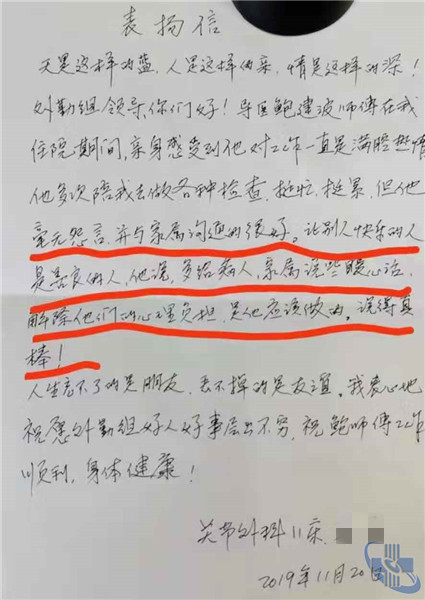 表扬信
天是这样的蓝，人是这样的亲，情是这样的深！
外勤组领导，你们好！导医鲍建波师傅在我
住院期间，亲身感受到他对工作一直是满腔热情
他多次陪我去做各种检查，挺忙，挺累，但他
毫无怨言，并与家属沟通的很好。让别人快乐的人
是善良的人，他说，多给病人，家属说些暖心话，
解除他们的心理负担，是他应该做的，说得真
棒！
人生忘不了的是朋友，丢不掉的是友谊。我衷心地
祝愿外勤组好人好事层出不穷，祝鲍师傅工作
顺利，身体健康！
关节外科11床
2019年11月20日